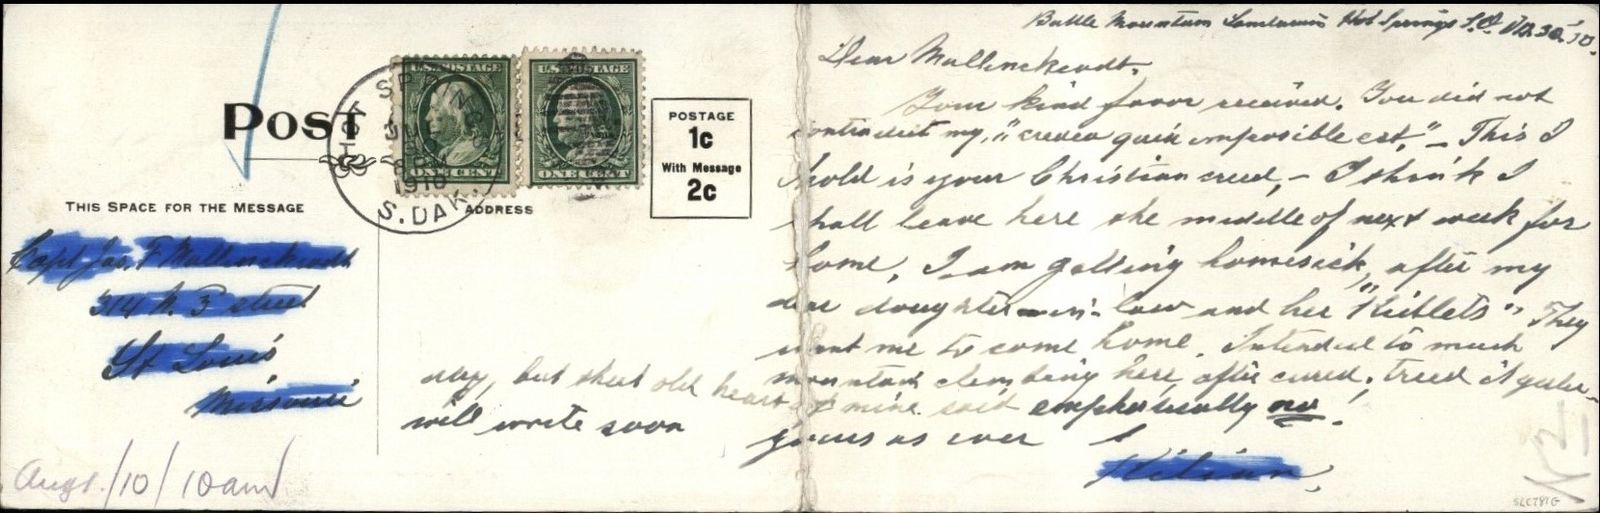 Post
THIS SPACE FOR THE MESSAGE
ADDRESS
U.S. POSTAGE
ONE CENT
U.S. POSTAGE
ONE CENT
HOT SPRINGS
1910
S. DAK.
POSTAGE
1c
With Message
2c
Capt Jas. F Mallinckrodt
314 N. 3 street
St Louis
Missouri
Augt./10/10 am
Battle Mountain Sanitarium Hot Springs S.D. 30 '10.
Dear Mallinckrodt,
Your kind favor received. You did not
contradict my, "credo quia impossible est." - This I
hold is your Christian creed, - I think I
shall leave here the middle of next week for
home, I am getting homesick, after my
dear daughter-in-law and her "Kidlets". They
want me to come home. Intended to much
mountain climbing here, after cured; tried it yester-
day, but that old heart of mine said emphatically no.
will write soon
yours as ever
Kilian,